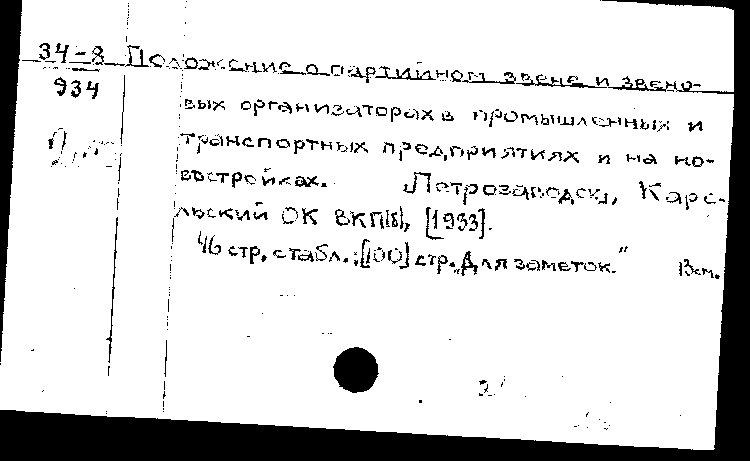 34-8
934
Положение о партийном звене и звено-
вых организаторах в промышленных и
транспортных предприятиях и на но-
востройках. [Петрозаводск], Каре-
льский ОК ВКП(б), [1933].
46 стр. с табл.; [100] стр. „Для заметок." 13см.